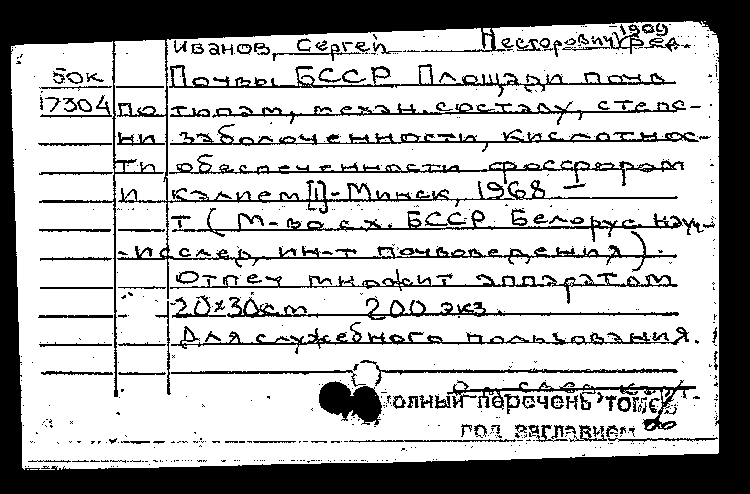 1909
Иванов, Сергей Несторович, ред.
50к Почвы БССР Площади почв
17304 по типам, механ. составу, степе-
ни заболоченности, кислотнос-
ти обеспеченности фосфором
и калием [1]-Минск, 1968 -
т ( М-во с.х. БССР Белорус. науч-
-исслед, ин-т почвоведения).
Отпеч множит аппаратом
20x30см 200 экз.
Для служебного пользования.
См след. карт.
полный перечень томов
под заглавием